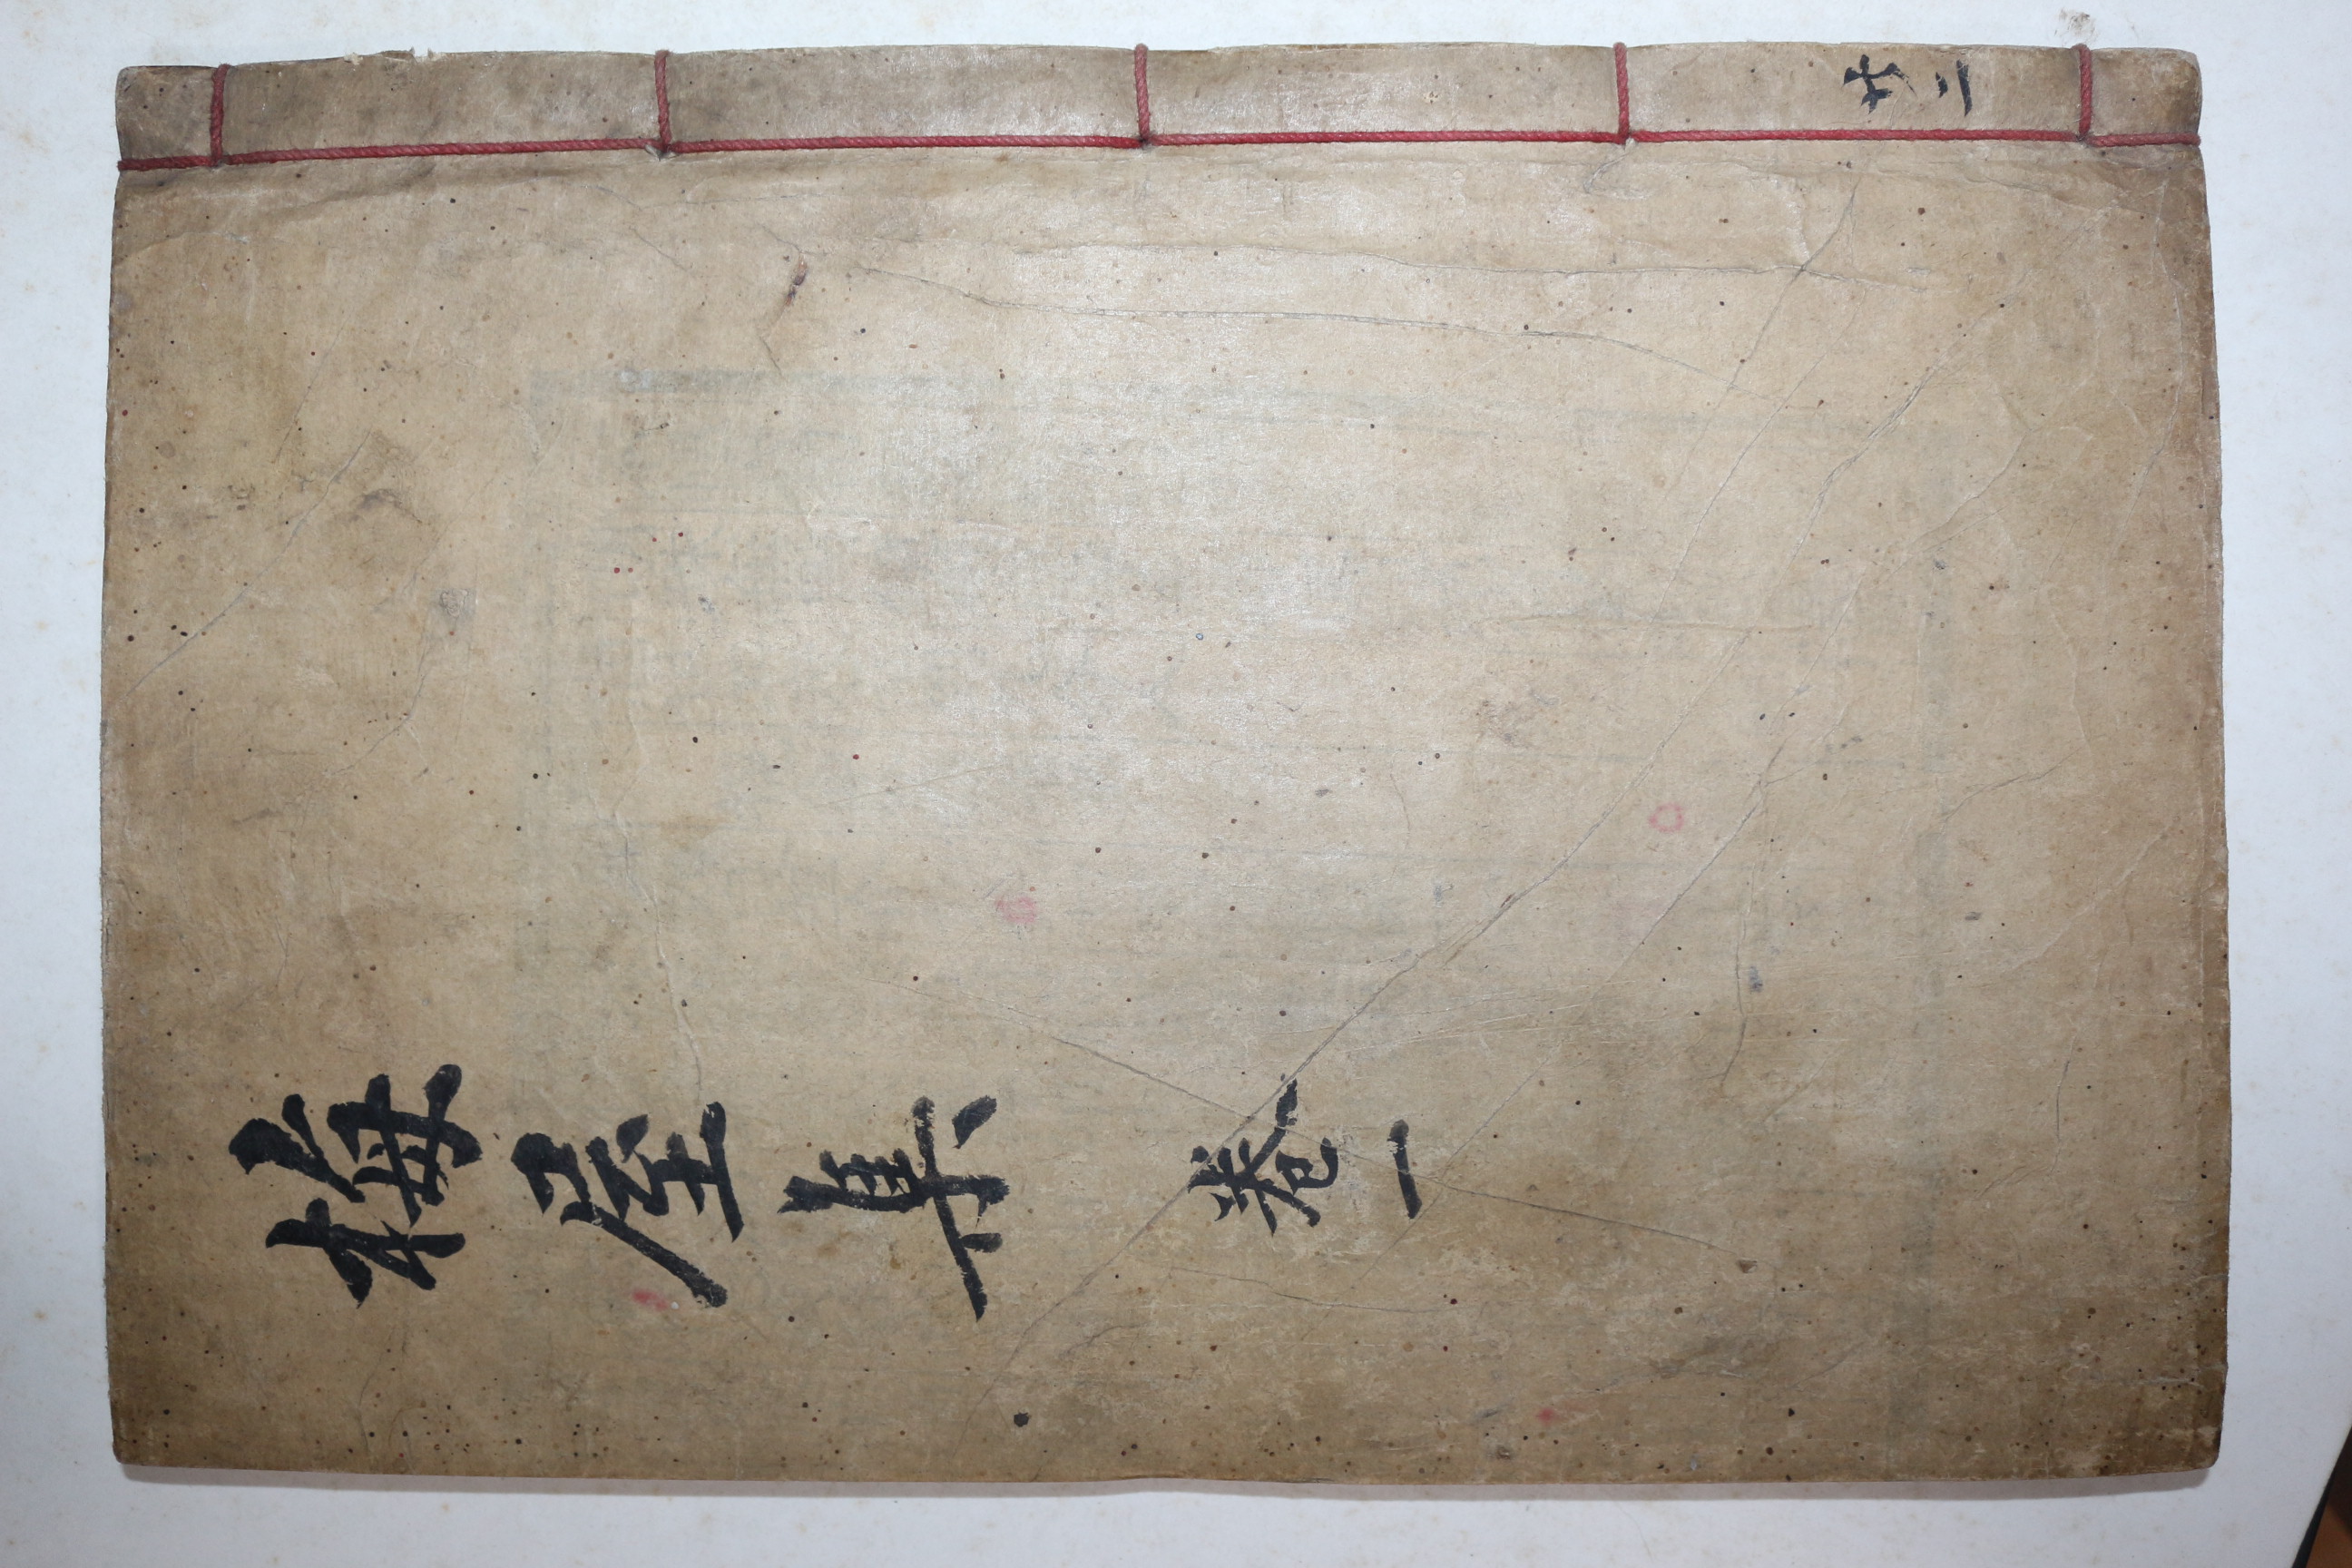 梅屋集 卷一
共二